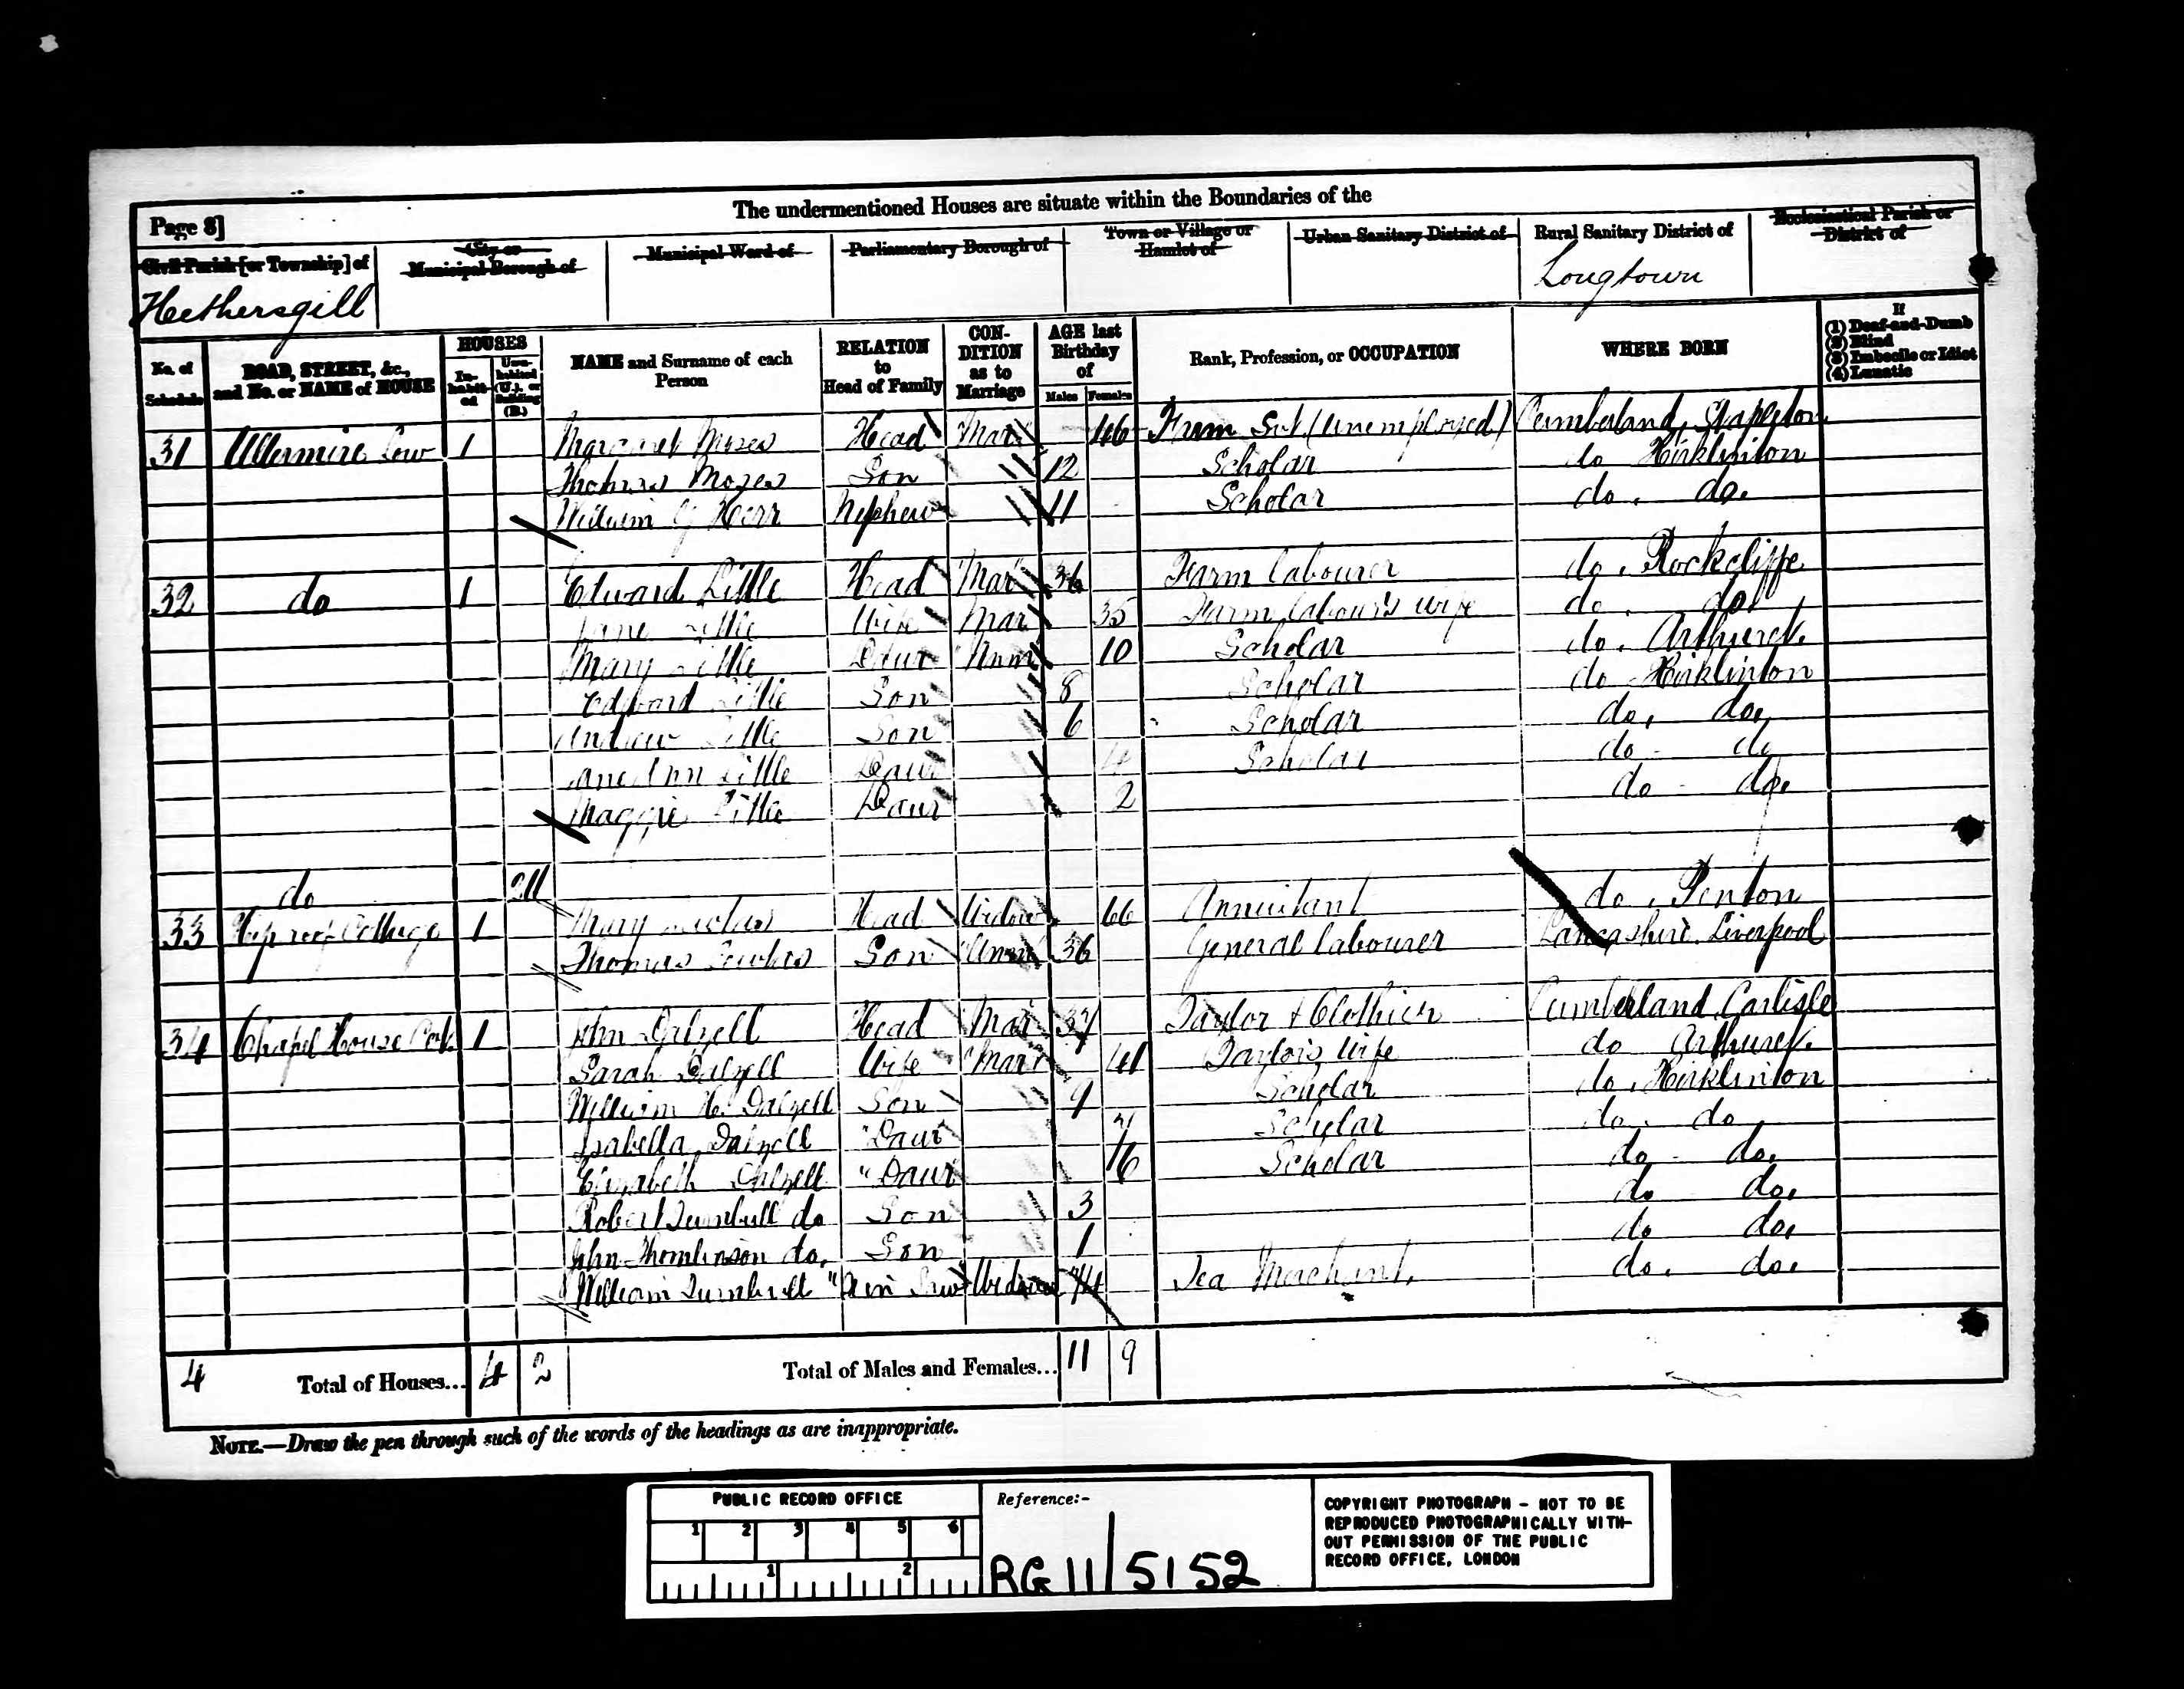 Page 8]
The undermentioned Houses are situate within the Boundaries of the
Civil Parish [or Township] of
City or Municipal Borough of
Municipal Ward of
Parliamentary Borough of
Town or Village or Hamlet of
Urban Sanitary District of
Rural Sanitary District of
Ecclesiastical Parish or District of
Hethersgill
Longtown
No. of Schedule
ROAD, STREET, &c., and No. or NAME of HOUSE
HOUSES
In-habit-ed
Unin-habited (U.), or Building (B.)
NAME and Surname of each Person
RELATION to Head of Family
CON-DITION as to Marriage
AGE last Birthday of
Males Females
Rank, Profession, or OCCUPATION
WHERE BORN
If
(1) Deaf-and-Dumb
(2) Blind
(3) Imbecile or Idiot
(4) Lunatic
31 Ullermire Low 1 Margaret Moses Head Mar 46 Farm Svt (unemployed) Cumberland, Stapleton
Thomas Moses Son 12 Scholar do Kirklinton
William G Kerr Nephew 11 Scholar do. do.
32 do 1 Edward Little Head Mar 36 Farm labourer do. Rockcliffe
Jane Little Wife Mar 35 Farm labour's wife do. do
Mary Little Daur Unm 10 Scholar do. Arthuret
Edward Little Son 8 Scholar do Kirklinton
Andrew Little Son 6 Scholar do, do,
Jane Ann Little Daur 4 Scholar do - do
Maggie Little Daur 2 do - do.
do 2U
33 Cottage 1 Mary Head Widow 66 Annuitant do. Penton
Thomas Son Unm 36 General labourer Lancashire. Liverpool
34 Chapel House Cot. 1 John Dalzell Head Mar 37 Taylor & Clothier Cumberland, Carlisle
Sarah Dalzell Wife Mar 41 Taylor's Wife do Arthuret.
William H. Dalzell Son 9 Scholar do. Kirklinton
Isabella Dalzell Daur 7 Scholar do. do
Elizabeth Dalzell Daur 6 Scholar do - do.
Robert Turnbull do Son 3 do do.
John Thomlinson do. Son 1 do do.
William Turnbull Law Widower 74 Tea Merchant. do. do.
4 Total of Houses... 4 2 Total of Males and Females... 11 9
NOTE.—Draw the pen through such of the words of the headings as are inappropriate.
PUBLIC RECORD OFFICE
1 2 3 4 5 6
1 2
Reference:-
RG 11/5152
COPYRIGHT PHOTOGRAPH - NOT TO BE
REPRODUCED PHOTOGRAPHICALLY WITH-
OUT PERMISSION OF THE PUBLIC
RECORD OFFICE, LONDON